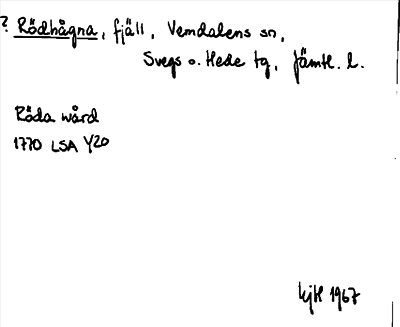 ? Rödhågna, fjäll, Vemdalens sn,
Svegs o. Hede tg, Jämtl. l.
Röda wård
1770 LSA Y20
1967